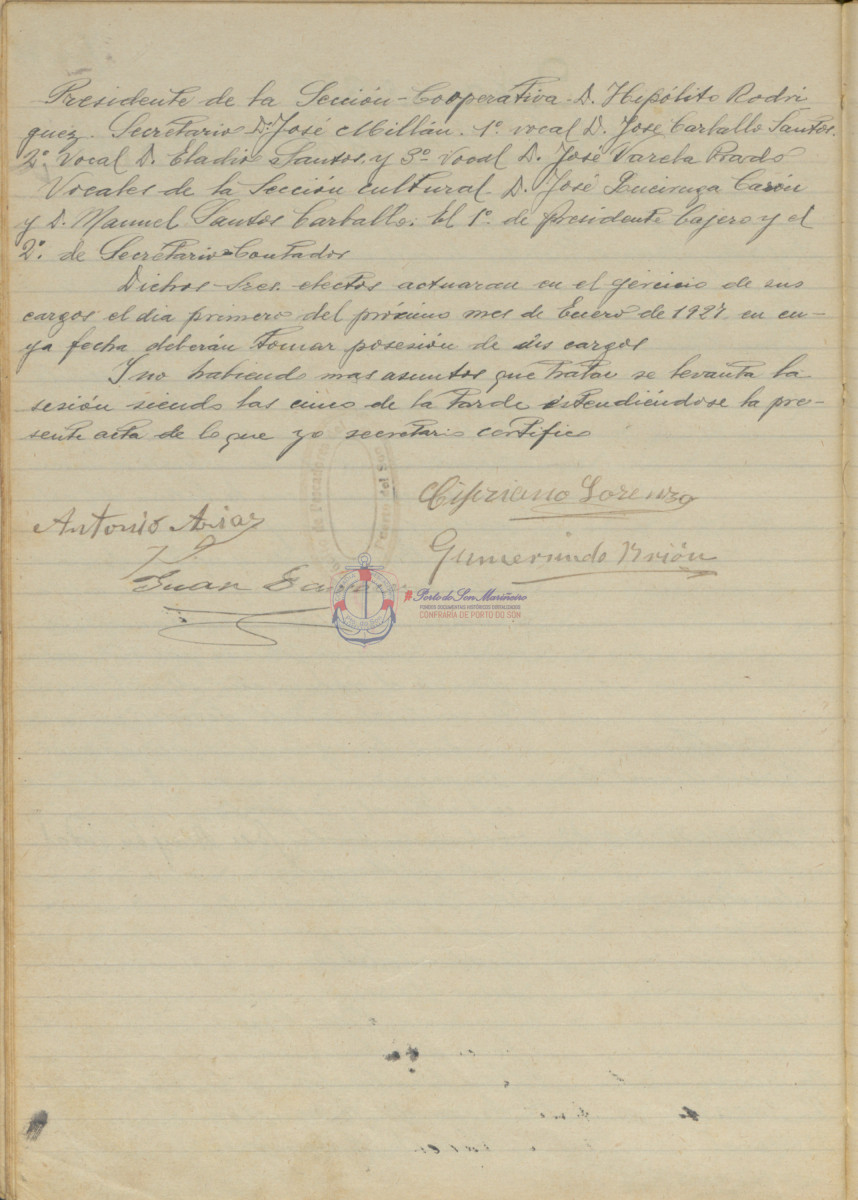 Presidente de la Sección-Cooperativa D. Hipólito Rodri
guez. Secretario D. José Millán. 1º vocal D. José Carballo Santos.
2º Vocal D. Eladio Santos y 3º Vocal D. José Varela Prado
Vocales de la Sección cultural D. José Queiruga
y D. Manuel Santos Carballo. El 1º de presidente Cajero y el
2º. de Secretario-Contador
Dichos Sres. electos actuaran en el ejercicio de sus
cargos el dia primero del próximo mes de Enero de 1927, en cu-
ya fecha deberán tomar posesión de sus cargos
I no habiendo mas asuntos que tratar se levanta la
sesión siendo las cinco de la tarde extendiéndose la pre-
sente acta de lo que yo secretario certifico
de Pescadores
Puerto del Son
Cipriano Lorenzo
Antonio Arias
Gumersindo Brión
Juan
Porto do Son Mariñeiro
FONDOS DOCUMENTAIS HISTÓRICOS DIXITALIZADOS
CONFRARÍA DE PORTO DO SON